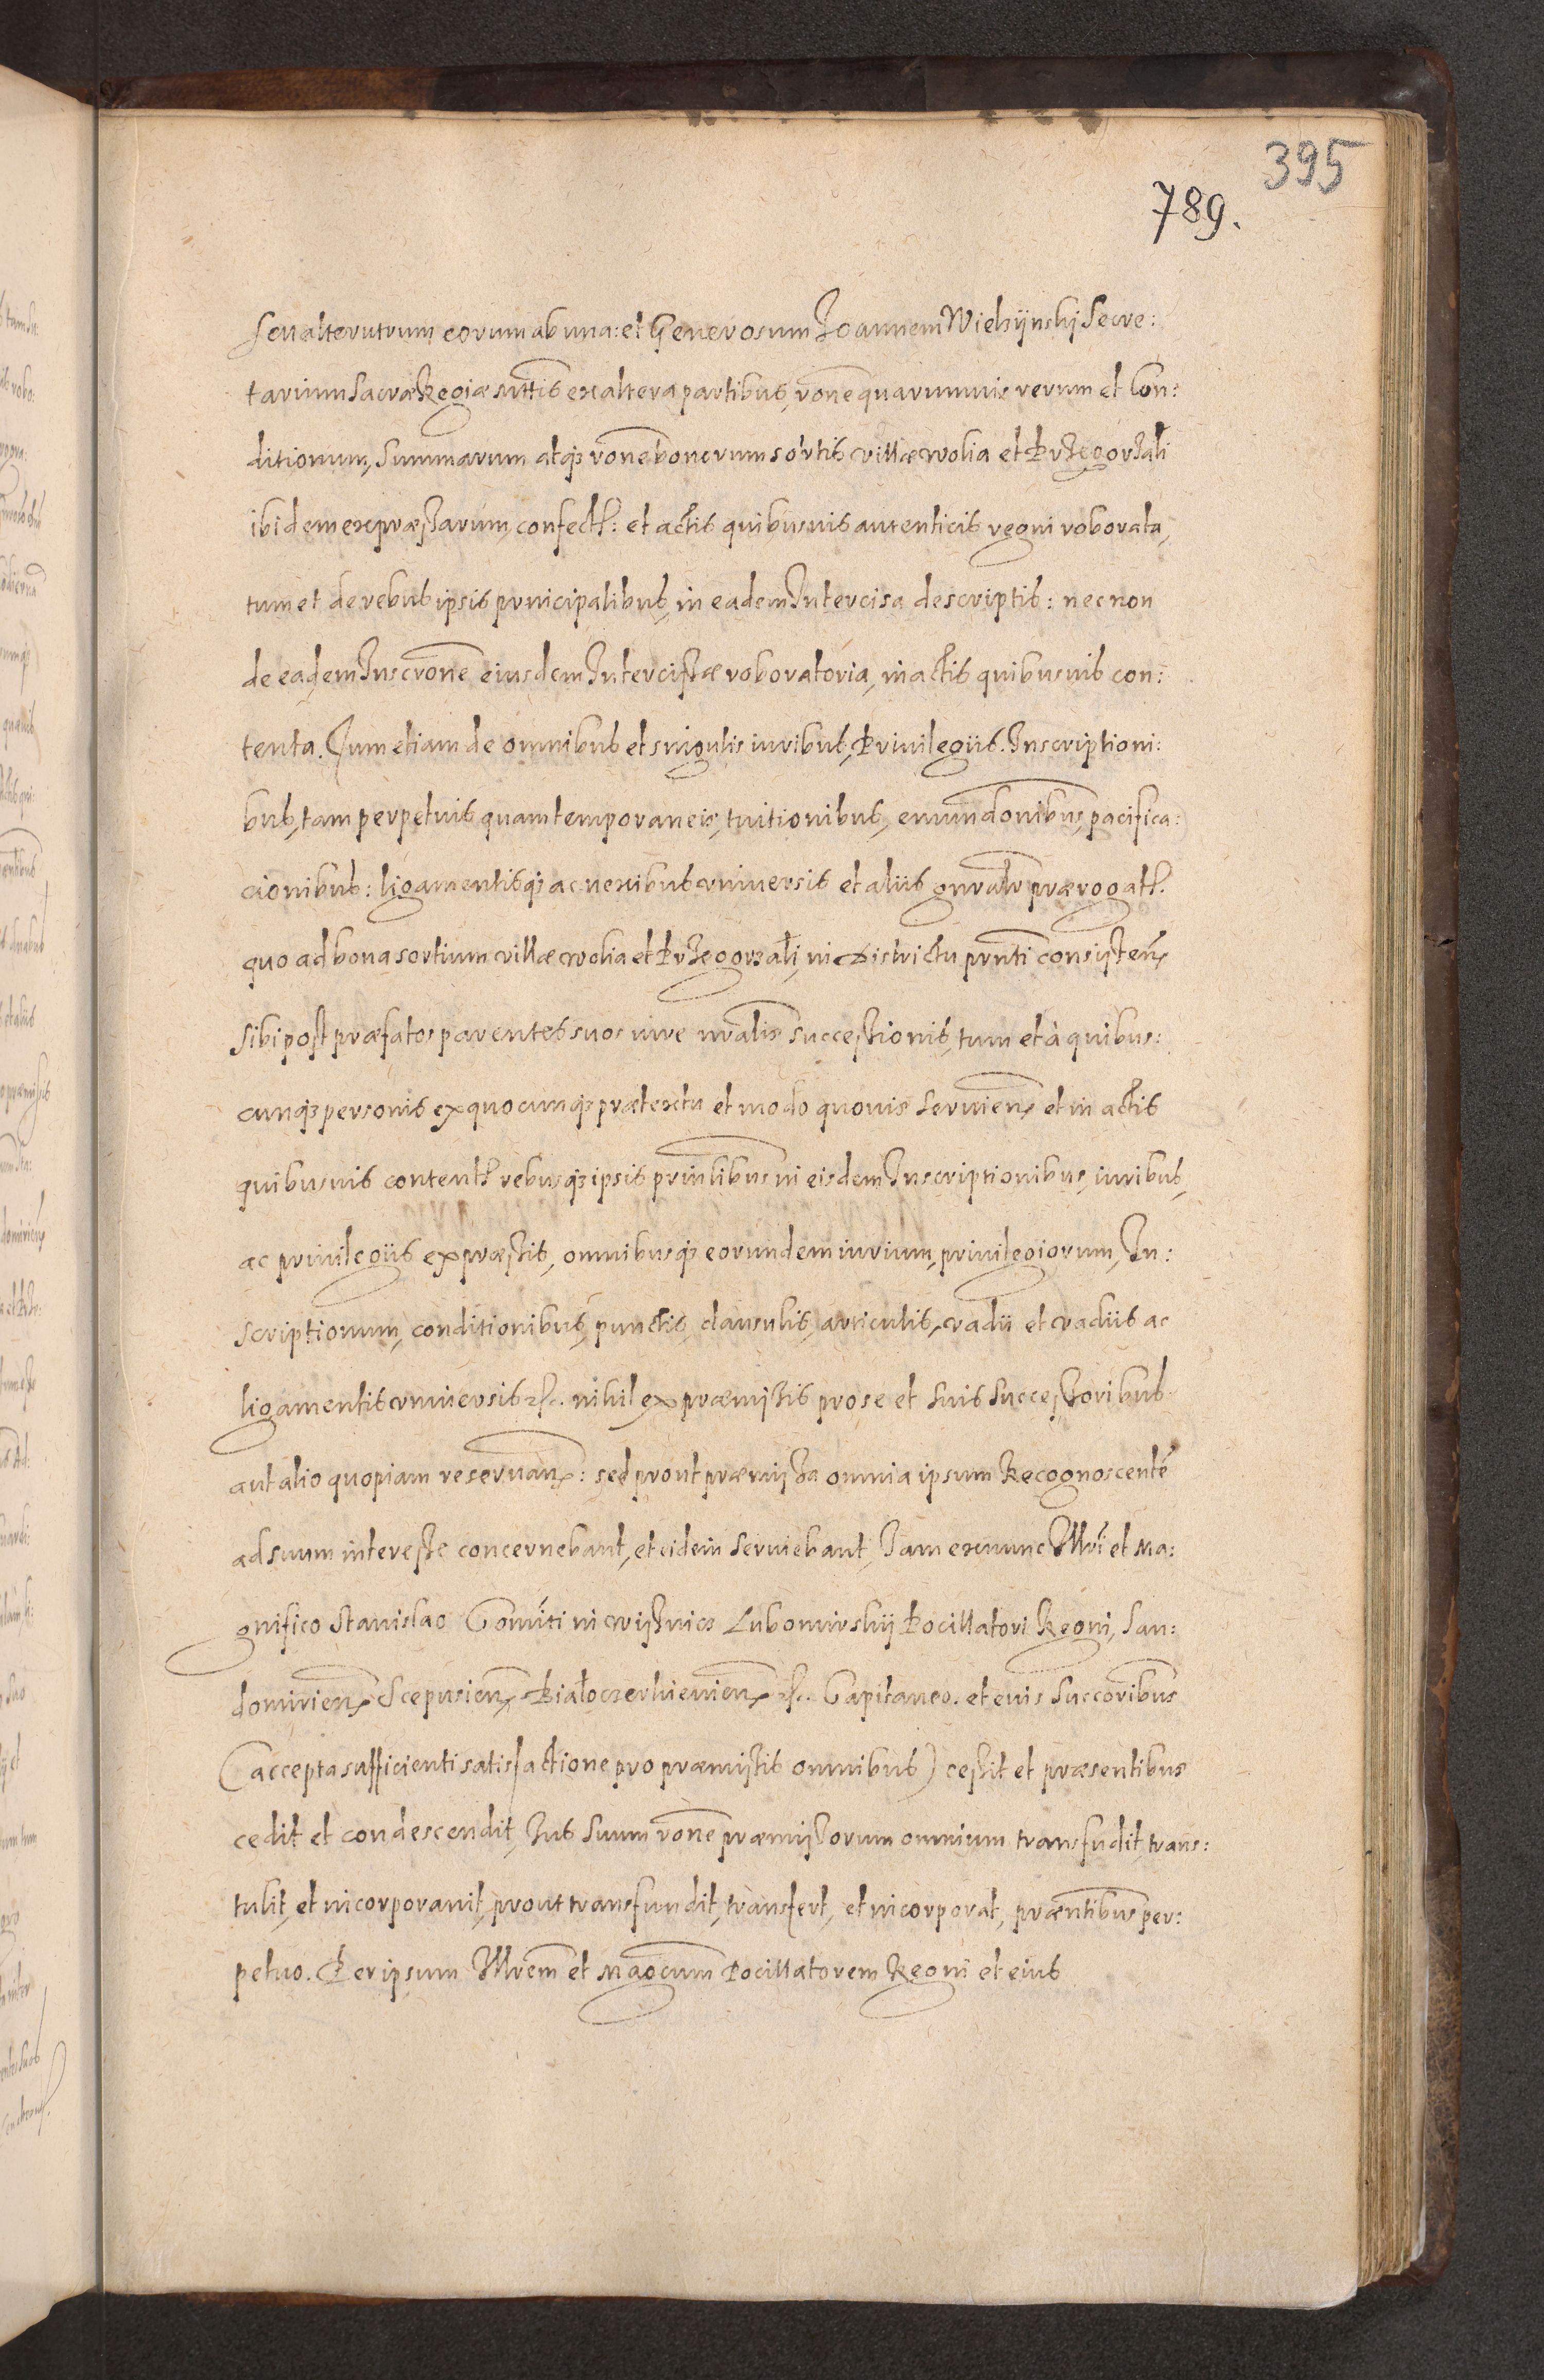 395
789.
seu alterutrum eorum ab una: et Generosum Joannem Wielzijnskj Secre:
tarium Sacræ Regiæ Mttis ex altera partibus, rōne quarumuis rerum et Con:
ditionum, Summarum atq3 rōne bonorum sortis villæ wolia et Przegorzali
ibidem expræssarum, confectʒ: et actis quibusuis autenticis regni roborata,
tum et de rebus ipsis principalibus, in eadem Intercisa descriptis: necnon
de eadem Inscrōne eiusdem Intercissæ roboratoria, in actis quibusuis con:
tenta. Cum etiam de omnibus et singulis iuribus, Priuilegijs. Inscriptioni:
bus, tam perpetuis quam temporaneis, tuitionibus, emundōnibus, pacifica:
cionibus: ligamentisq3 ac nexibus vniuersis et alijs gnralr prærogatʒ.
quo ad bona sortium villæ wolia et Przegorzali, in Districtu prnti consisten.
sibi post præfatos parentes suos iure nralis successionis, tum et à quibus:
cunq3 personis ex quocunq3 prætextu et modo quouis seruien. et in actis
quibusuis contentʒ rebusq3 ipsis prinlibus in eisdem Inscriptionibus, iuribus,
ac priuilegijs expræssis, omnibusq3 eorundem iurium, priuilegiorum, In:
scriptionum, conditionibus, punctis, clausulis, articulis, vadij et vadijs ac
ligamentis vniuersis etc. nihil ex præmissis pro se et suis successoribus
aut alio quopiam reseruan.: sed prout præmissa omnia ipsum Recognoscentē
ad suum interesse concernebant, et eidem seruiebant, Jam exnunc Illri et Ma:
gnifico Stanislao Comiti in wisnicz Lubomirskij Pocillatori Regni, San:
domirien. Scepusien. Białoczerkieuien. etc. Capitaneo. et euis Succoribus
(accepta sufficienti satisfactione pro præmissis omnibus) cessit et præsentibus
cedit et condescendit, Jus suum rōne præmissorum omnium transfudit, trans:
tulit, et incorporauit, prout transfundit, transfert, et incorporat, præntibus per:
petuo. Per ipsum Illrem et Magcum Pocillatorem Regni et eius